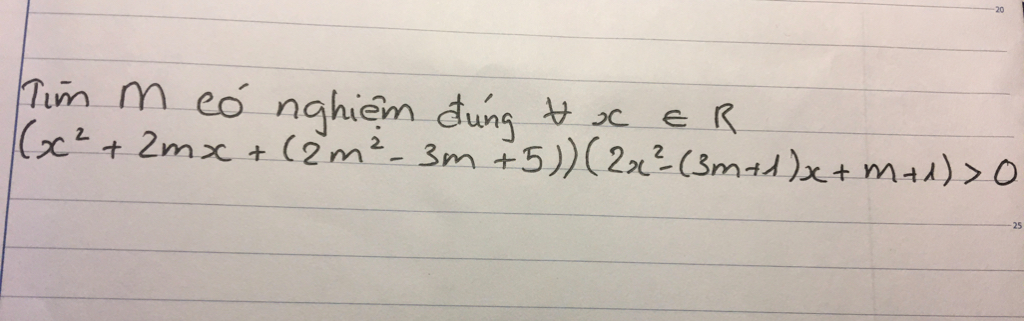 20
Tìm m có nghiệm đúng ∀ x ∈ R
(x² + 2mx + (2m² - 3m + 5))(2x² - (3m+1)x + m+1) > 0
25